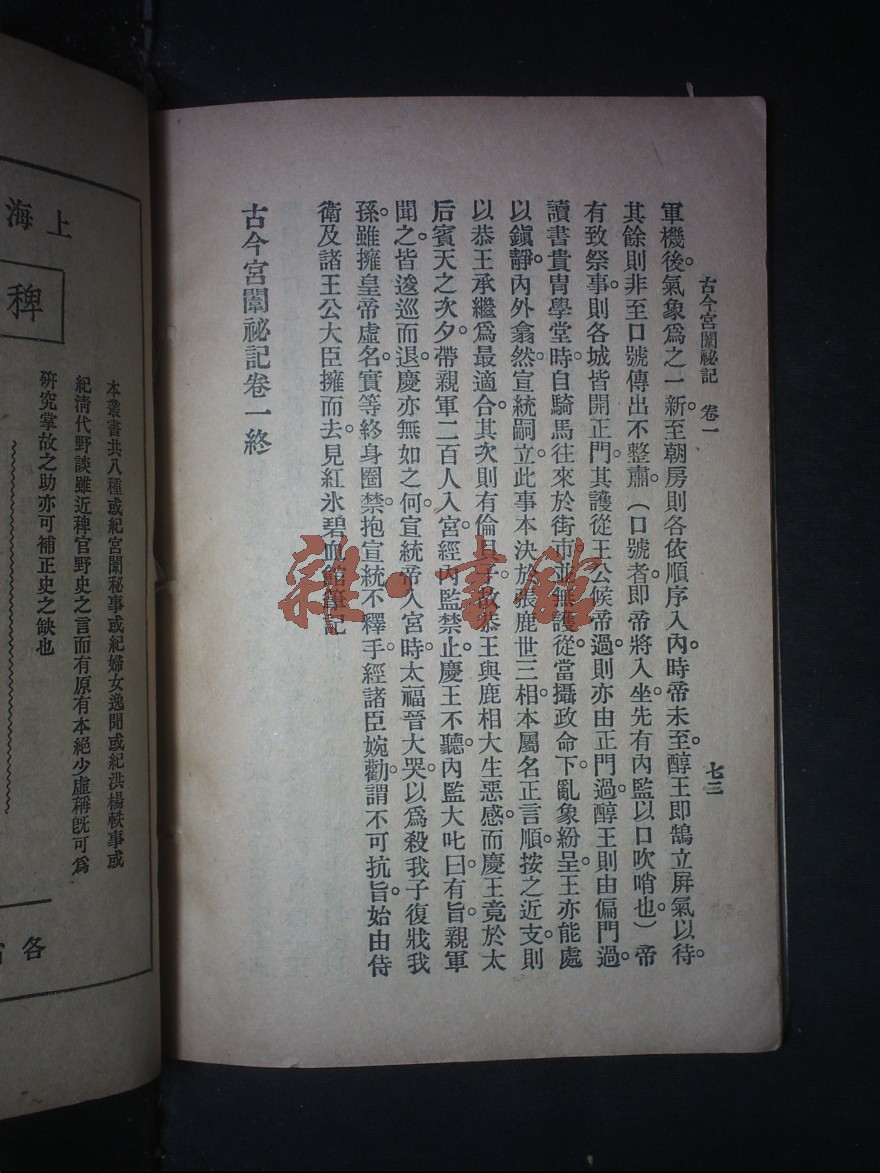 古今宮闈祕記 卷一 七三
軍機後。氣象爲之一新。至朝房則各依順序入內。時帝未至。醇王即鵠立屛氣以待。
其餘則非至口號傳出不整肅。(口號者。即帝將入坐。先有內監以口吹哨也。)帝
有致祭事。則各城皆開正門。其護從王公候帝過。則亦由正門過。醇王則由偏門過。
讀書貴冑學堂時。自騎馬往來於街市。並無護從。當攝政命下。亂象紛呈。王亦能處
以鎭靜。內外翕然。宣統嗣立。此事本決於張鹿世三相。本屬名正言順。按之近支。則
以恭王承繼爲最適合。其次則有倫貝子。故恭王與鹿相大生惡感。而慶王竟於太
后賓天之次夕。帶親軍二百人入宮。經內監禁止。慶王不聽。內監大叱曰有旨。親軍
聞之。皆逡巡而退。慶亦無如之何。宣統帝入宮時。太福晉大哭。以爲殺我子復戕我
孫。雖擁皇帝虛名。實等終身圈禁。抱宣統不釋手。經諸臣婉勸。謂不可抗旨。始由侍
衛及諸王公大臣擁而去。見紅氷碧血館筆記
古今宮闈祕記卷一終
雜·書館
上海
稗
本叢書共八種或紀宮闈秘事或紀婦女逸聞或紀洪楊軼事或
紀清代野談雖近稗官野史之言而有原有本絕少虛稱旣可爲
硏究掌故之助亦可補正史之缺也
各